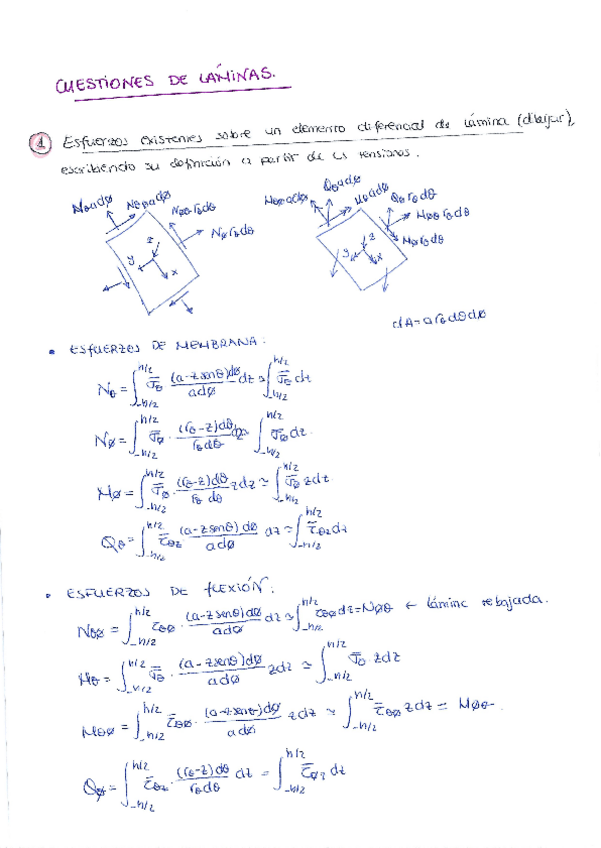 CUESTIONES DE LÁMINAS.
① Esfuerzos existentes sobre un elemento diferencial de lámina (dibujar),
escribiendo su definición a partir de las tensiones.
Nθ a dØ Nθø a dØ Nøθ rθ dθ NØ rθ dθ
Nθø a dØ Qθ a dØ Mθ a dØ Qø rθ dθ Møθ rθ dθ Mø rθ dθ
z y x
z y x
dA = a rθ dθ dØ
• ESFUERZOS DE MEMBRANA:
Nθ = ∫_{-h/2}^{h/2} σ̄θ · (a - z senθ) dØ / a dØ dz ≃ ∫_{-h/2}^{h/2} σ̄θ dz
NØ = ∫_{-h/2}^{h/2} σ̄Ø · (rθ - z) dθ / rθ dθ dz ≃ ∫_{-h/2}^{h/2} σ̄Ø dz.
MØ = ∫_{-h/2}^{h/2} σ̄Ø · (rθ - z) dθ / rθ dθ z dz ≃ ∫_{-h/2}^{h/2} σ̄Ø z dz
Qθ = ∫_{-h/2}^{h/2} τ̄θz · (a - z senθ) dØ / a dØ dz ≃ ∫_{-h/2}^{h/2} τ̄θz dz
• ESFUERZOS DE FLEXIÓN:
NθØ = ∫_{-h/2}^{h/2} τ̄θØ · (a - z senθ) dØ / a dØ dz ≃ ∫_{-h/2}^{h/2} τθØ dz = NØθ ← lámina rebajada.
Mθ = ∫_{-h/2}^{h/2} σ̄θ · (a - z senθ) dØ / a dØ z dz ≃ ∫_{-h/2}^{h/2} σ̄θ z dz
MθØ = ∫_{-h/2}^{h/2} τ̄θØ · (a - z senθ) dØ / a dØ z dz ≃ ∫_{-h/2}^{h/2} τ̄θØ z dz = MØθ.
QØ = ∫_{-h/2}^{h/2} τ̄θz · (rθ - z) dθ / rθ dθ dz = ∫_{-h/2}^{h/2} τ̄Øz dz